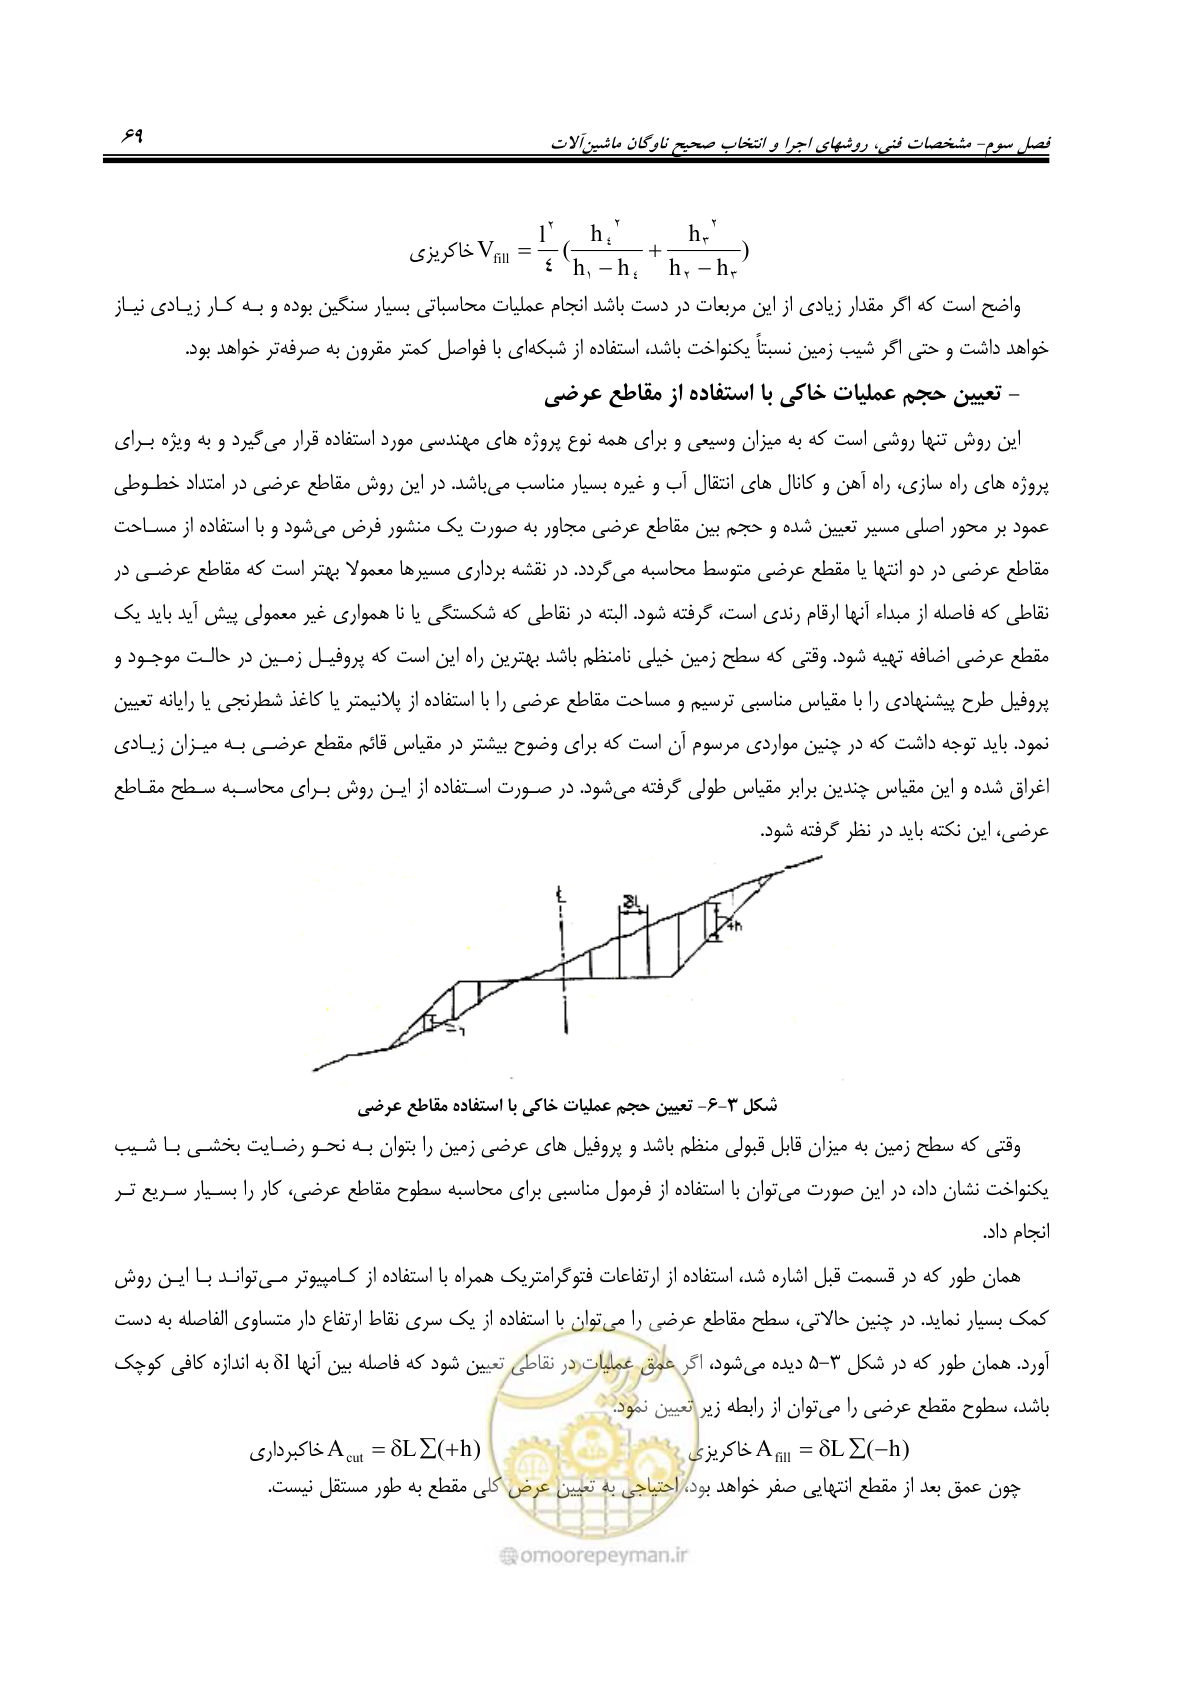 فصل سوم- مشخصات فنی، روشهای اجرا و انتخاب صحیح ناوگان ماشین‌آلات ۶۹
خاکریزی V_fill = l^۲/٤ (h_٤^۲/(h_۱ − h_٤) + h_۳^۲/(h_۲ − h_۳))
واضح است که اگر مقدار زیادی از این مربعات در دست باشد انجام عملیات محاسباتی بسیار سنگین بوده و به کار زیادی نیاز
خواهد داشت و حتی اگر شیب زمین نسبتاً یکنواخت باشد، استفاده از شبکه‌ای با فواصل کمتر مقرون به صرفه‌تر خواهد بود.
- تعیین حجم عملیات خاکی با استفاده از مقاطع عرضی
این روش تنها روشی است که به میزان وسیعی و برای همه نوع پروژه های مهندسی مورد استفاده قرار می‌گیرد و به ویژه برای
پروژه های راه سازی، راه آهن و کانال های انتقال آب و غیره بسیار مناسب می‌باشد. در این روش مقاطع عرضی در امتداد خطوطی
عمود بر محور اصلی مسیر تعیین شده و حجم بین مقاطع عرضی مجاور به صورت یک منشور فرض می‌شود و با استفاده از مساحت
مقاطع عرضی در دو انتها یا مقطع عرضی متوسط محاسبه می‌گردد. در نقشه برداری مسیرها معمولا بهتر است که مقاطع عرضی در
نقاطی که فاصله از مبداء آنها ارقام رندی است، گرفته شود. البته در نقاطی که شکستگی یا نا همواری غیر معمولی پیش آید باید یک
مقطع عرضی اضافه تهیه شود. وقتی که سطح زمین خیلی نامنظم باشد بهترین راه این است که پروفیل زمین در حالت موجود و
پروفیل طرح پیشنهادی را با مقیاس مناسبی ترسیم و مساحت مقاطع عرضی را با استفاده از پلانیمتر یا کاغذ شطرنجی یا رایانه تعیین
نمود. باید توجه داشت که در چنین مواردی مرسوم آن است که برای وضوح بیشتر در مقیاس قائم مقطع عرضی به میزان زیادی
اغراق شده و این مقیاس چندین برابر مقیاس طولی گرفته می‌شود. در صورت استفاده از این روش برای محاسبه سطح مقاطع
عرضی، این نکته باید در نظر گرفته شود.
شکل ۳-۶- تعیین حجم عملیات خاکی با استفاده مقاطع عرضی
وقتی که سطح زمین به میزان قابل قبولی منظم باشد و پروفیل های عرضی زمین را بتوان به نحو رضایت بخشی با شیب
یکنواخت نشان داد، در این صورت می‌توان با استفاده از فرمول مناسبی برای محاسبه سطوح مقاطع عرضی، کار را بسیار سریع تر
انجام داد.
همان طور که در قسمت قبل اشاره شد، استفاده از ارتفاعات فتوگرامتریک همراه با استفاده از کامپیوتر می‌تواند با این روش
کمک بسیار نماید. در چنین حالاتی، سطح مقاطع عرضی را می‌توان با استفاده از یک سری نقاط ارتفاع دار متساوی الفاصله به دست
آورد. همان طور که در شکل ۳-۵ دیده می‌شود، اگر عمق عملیات در نقاطی تعیین شود که فاصله بین آنها δl به اندازه کافی کوچک
باشد، سطوح مقطع عرضی را می‌توان از رابطه زیر تعیین نمود.
خاکریزی A_fill = δL ∑(−h) خاکبرداری A_cut = δL ∑(+h)
چون عمق بعد از مقطع انتهایی صفر خواهد بود، احتیاجی به تعیین عرض کلی مقطع به طور مستقل نیست.
@omoorepeyman.ir